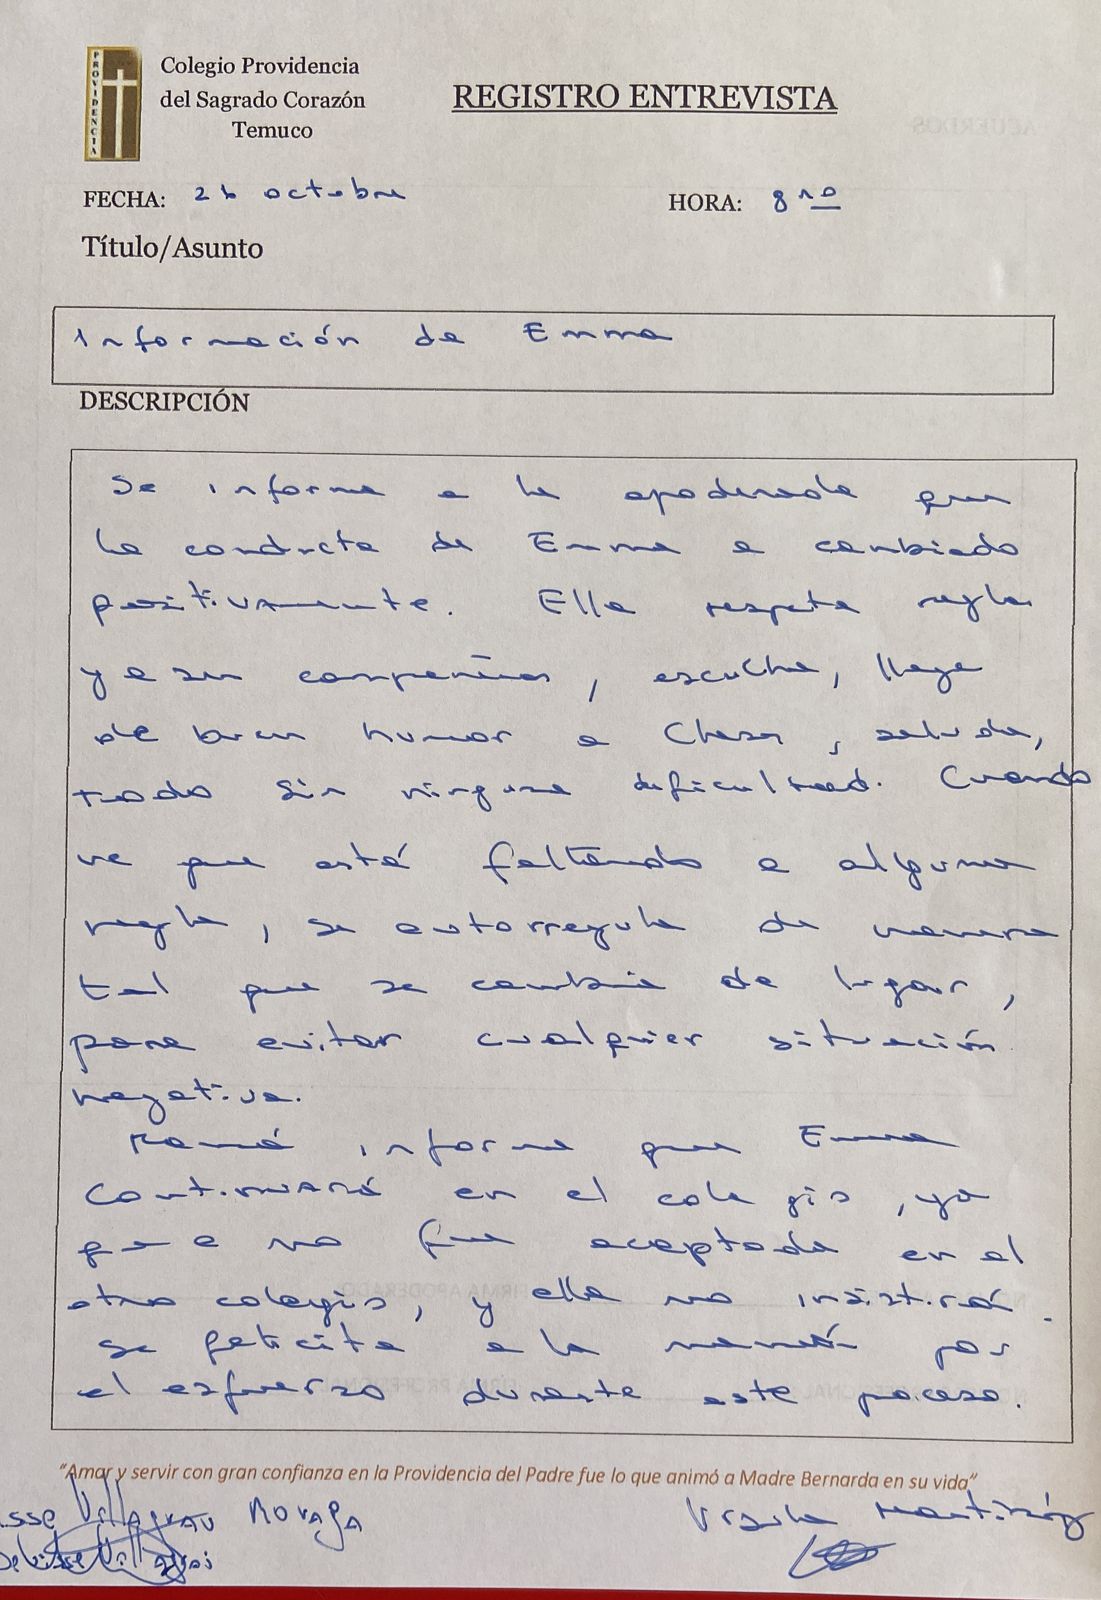 PROVIDENCIA
Colegio Providencia
del Sagrado Corazón
Temuco
REGISTRO ENTREVISTA
FECHA: 26 octubre
HORA: 8 10
Título/Asunto
Información de Emma
DESCRIPCIÓN
Se informa a la apoderada que
la conducta de Emma a cambiado
positivamente. Ella respeta reglas
y a sus compañeros, escucha, llega
de buen humor a clases, saluda,
todo sin ninguna dificultad. Cuando
ve que está faltando a alguna
regla, se autorregula de manera
tal que se cambia de lugar,
para evitar cualquier situación
negativa.
Mamá informa que Emma
continuará en el colegio, ya
que no fue aceptada en el
otro colegio, y ella no insistirá.
Se felicita a la mamá por
el esfuerzo durante este proceso.
"Amar y servir con gran confianza en la Providencia del Padre fue lo que animó a Madre Bernarda en su vida"
Villagran Moraga
Ursula Martínez